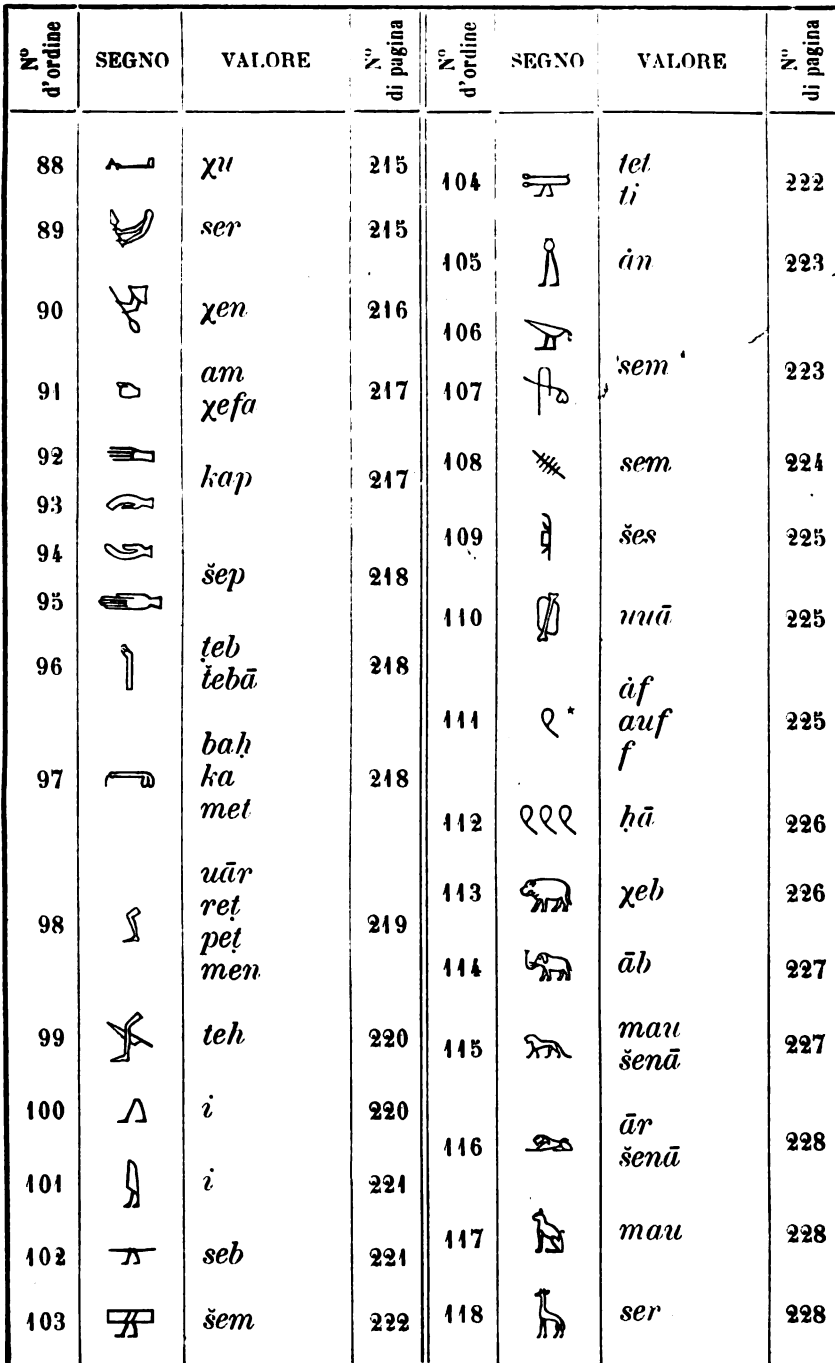 Nº d'ordine SEGNO VALORE Nº di pagina
88 χu 215
89 ser 215
90 χen 216
91 am χefa 217
92
93 kap 217
94
95 šep 218
96 ṭeb t̆ebā 218
97 baḥ ka met 218
98 uār reṭ peṭ men 219
99 teh 220
100 i 220
101 i 221
102 seb 221
103 šem 222
Nº d'ordine SEGNO VALORE Nº di pagina
104 tet ti 222
105 ȧn 223
106
107 sem 223
108 sem 224
109 šes 225
110 uuā 225
111 * ȧf auf f 225
112 ḥā 226
113 χeb 226
114 āb 227
115 mau šenā 227
116 ār šenā 228
117 mau 228
118 ser 228